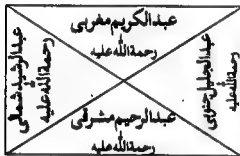 عبدالکریم مغربی
رحمة الله علیه
عبدالرشید شمالی
رحمة الله علیه
عبدالجلیل جنوبی
رحمة الله علیه
عبدالرحیم مشرقی
رحمة الله علیه